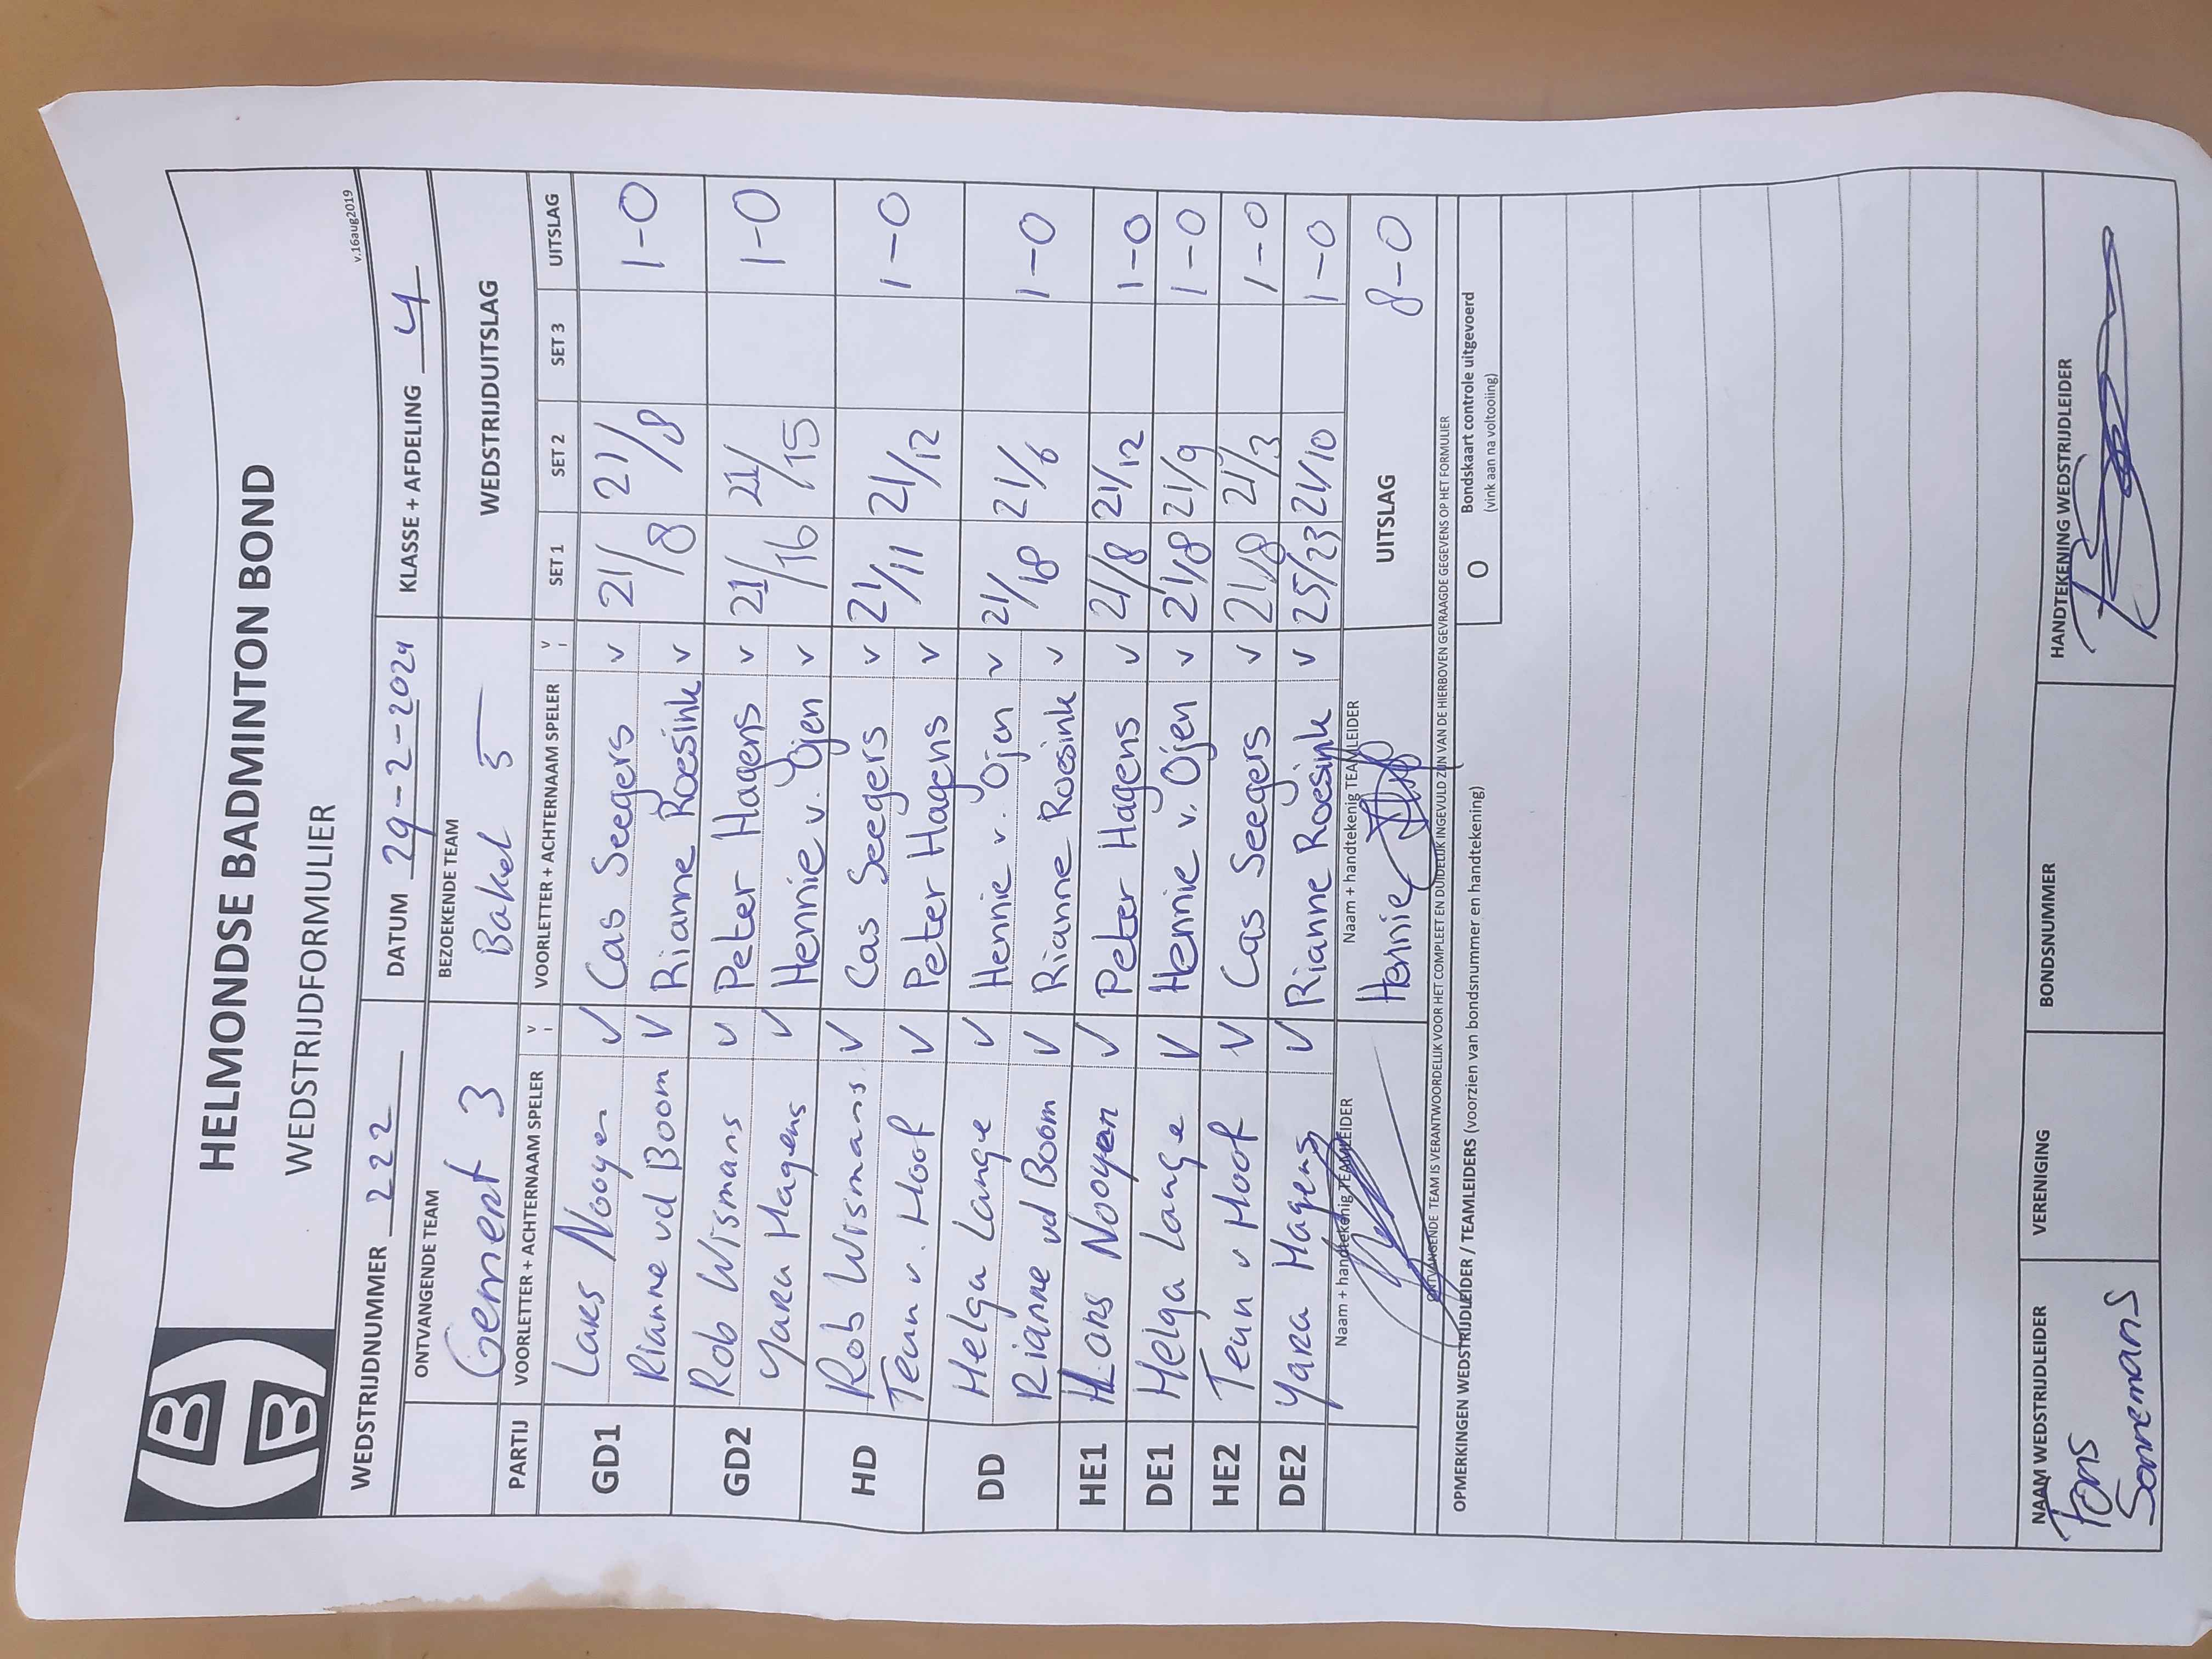 HELMONDSE BADMINTON BOND
WEDSTRIJDFORMULIER
v.16aug2019
WEDSTRIJDNUMMER 222 DATUM 29-2-2024 KLASSE + AFDELING 4
ONTVANGENDE TEAM BEZOEKENDE TEAM WEDSTRIJDUITSLAG
Gemert 3 Bakel 5
PARTIJ VOORLETTER + ACHTERNAAM SPELER V VOORLETTER + ACHTERNAAM SPELER V SET 1 SET 2 SET 3 UITSLAG
GD1 Lars Nooyen V Cas Seegers V 21/8 21/8 1-0
Rianne vd Boom V Rianne Roesink V
GD2 Rob Wismans V Peter Hagens V 21/16 21/15 1-0
Yara Hagens V Hennie v. Ojen V
HD Rob Wismans V Cas Seegers V 21/11 21/12 1-0
Teun v. Hoof V Peter Hagens V
DD Helga Lange V Hennie v. Ojen V 21/18 21/6 1-0
Rianne vd Boom V Rianne Roesink V
HE1 Lars Nooyen V Peter Hagens V 21/8 21/12 1-0
DE1 Helga Lange V Hennie v. Ojen V 21/18 21/9 1-0
HE2 Teun v Hoof V Cas Seegers V 21/8 21/3 1-0
DE2 Yara Hagens V Rianne Roesink V 25/23 21/10 1-0
Naam + handtekenig TEAMLEIDER Naam + handtekenig TEAMLEIDER
Hennie UITSLAG 8-0
ONTVANGENDE TEAM IS VERANTWOORDELIJK VOOR HET COMPLEET EN DUIDELIJK INGEVULD ZIJN VAN DE HIERBOVEN GEVRAAGDE GEGEVENS OP HET FORMULIER
OPMERKINGEN WEDSTRIJDLEIDER / TEAMLEIDERS (voorzien van bondsnummer en handtekening)
O Bondskaart controle uitgevoerd
(vink aan na voltooiing)
NAAM WEDSTRIJDLEIDER VERENIGING BONDSNUMMER HANDTEKENING WEDSTRIJDLEIDER
Fons
Sonnemans
BB